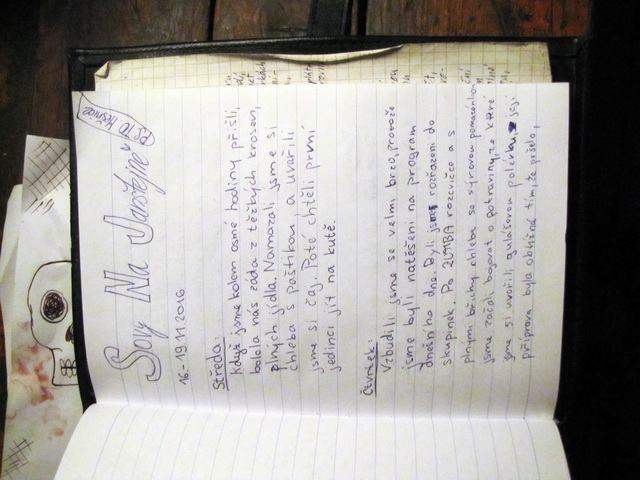 Sovy Na Jarštejně
16. - 19.11.2016
Středa:
Když jsme kolem osmé hodiny přišli,
bolela nás záda z těžkých krosen,
plných jídla. Namazali jsme si
chleba s paštikou a uvařili
jsme si čaj. Poté chtěli první
jedinci jít na kutě.
Čtvrtek:
Vzbudili jsme se velmi brzo, protože
jsme byli natěšeni na program
dnešního dne. Byli jsme rozřazeni do
skupinek. Po ZUMBA rozcvičce a s
plnými břichy chleba se sýrovou pomazánkou
jsme začali bojovat o potraviny, ze které
jsme si uvořili gulášovou polévku, její
příprava byla obtížná tím, že pršelo,